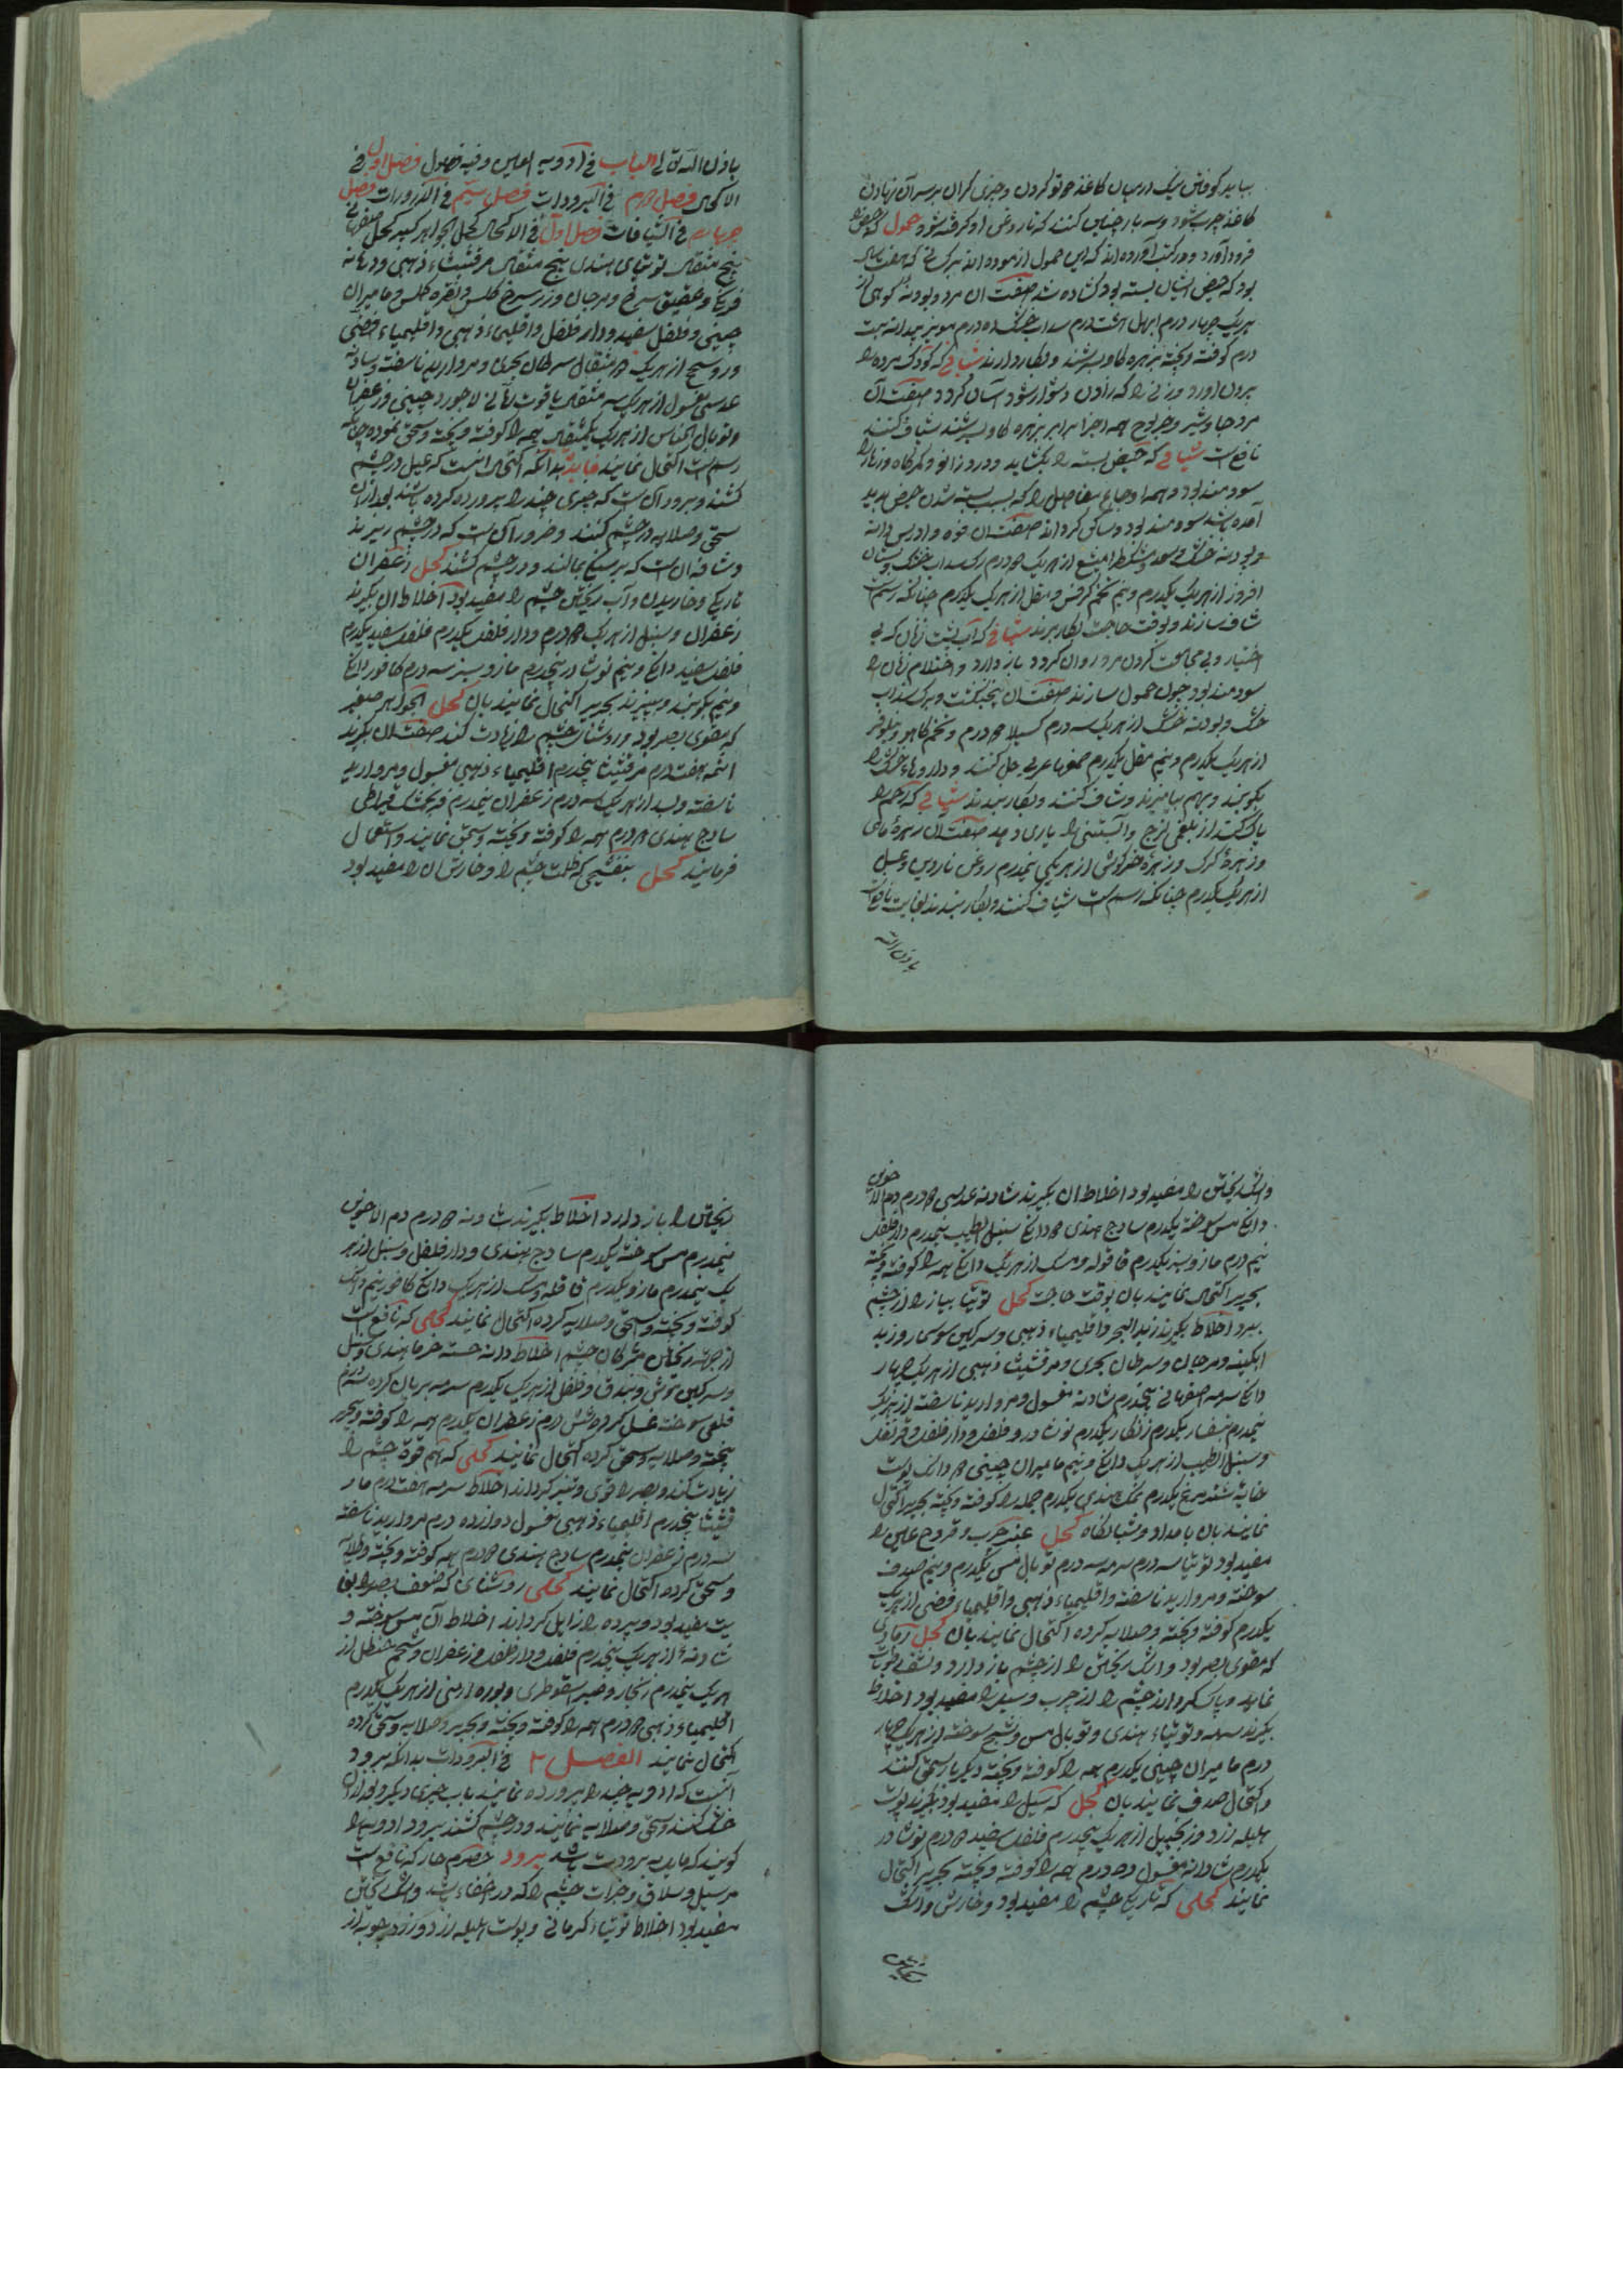 بباید کوفتن نیک درمیان کاغذ دو تو کردن و چیزی کران بر سر آن نهادن
کاغذ چرب شود و سه بار چنین کنند که تا روغن او کرفته شود حمول که حیض
فرود آورد و در کتب آورده اند که این حمول ازموده اند بزنی که هفت سال
بود که حیض ایشان بسته بود کشاده شد صفت آن مر و پودنه کوهی از
هریک چهار درم ابهل هشت درم سداب خشک ده درم مویز بیدانه بیست
درم کوفته و پخته بزهره کاو بسرشند و بکار دارند شیافی که کودک مرده را
برون آورد و زنی را که زادن دشوار شود آسان کردد صفت آن
مر و جاوشیر و خربق همه اجزا برابر بزهره کاو بسرشند شیاف کنند
نافع است شیافی که حیض بسته را بکشاید و درد زانو و کمرکاه و زهار را
سودمند بود و همه اوجاع مفاصل را که بسبب بسته شدن حیض پدید
آمده باشد سودمند بود و ساکن کرداند صفت آن
و پودنه خشک و مشکطرامشیع از هریک ۲ درم سداب خشک
از هریک یکدرم و نیم تخم کرفس و مقل از هریک یکدرم چنانکه رسم است
شاف سازند و بوقت حاجت بکار برند شیافی که آب پشت زنان که بی
اختیار و بی مجامعت کردن مرد روان کردد باز دارد و احتلام زنان را
سودمند بود چون حمول سازند صفت آن پنجنکشت و برک سداب
خشک و پودنه خشک از هریک سه درم ۲ درم و تخم کاهو و نیلوفر
از هریک یکدرم و نیم مقل یکدرم صمغها عربی حل کنند و داروهاء خشک را
بکوبند و بهم بیامیزند و شاف کنند و بکار بندند شیافی که رحم را
پاک کند از بلغمی لزج و آبستنی را یاری دهد صفت آن زهرهٔ ماهی
و زهرهٔ کرک و زهرهٔ خرکوش از هریکی نیمدرم روغن ناردین و عسل
از هریک یکدرم چنانکه رسم است شیاف کنند و بکار بندند بغایت نافع است
باذن الله
باذن الله تعالی الباب فی ادویه العین و فیه فصول فصل اول فی
الاکحال فصل دوم فی البرودات فصل سیم فی الذرورات فصل
چهارم فی الشیافات فصل اول فی الاکحال کحل الجواهر کبیر کحل صفهانی
پنج مثقال توتیای هندی پنج مثقال مرقشیثاء ذهبی و دهانه
فرنک و عقیق سرخ و مرجان و زر سرخ کلس و نقره کلس و مامیران
چینی و فلفل سفید و دار فلفل و اقلیمیاء ذهبی و اقلیمیاء فضی
و روسختج از هریک ۲ مثقال سرطان بحری و مروارید ناسفته و شادنه
عدسی مغسول از هریک سه مثقال یاقوت رمانی لاجورد چینی و زعفران
و توبال النحاس از هریک یکمثقال همه را کوفته و پخته و سحق نموده چنانکه
رسم است اکتحال نمایند فایده بدانکه اکتحال انست که بمیل در چشم
کشند و برود آن است که چیزی چند را پرورده کرده باشند بعد ازان
سحق و صلایه در چشم کنند و ذرور آن است که در چشم ریزند
و شافه آن است که بر سنک بمالند و در چشم کشند کحل زعفران
تاریکی و خاریدن و آب ریختن چشم را مفید بود اخلاط آن بکیرند
زعفران و سنبل از هریک ۲ درم و دارفلفل یکدرم فلفل سفید یکدرم
فلفل سفید دانکی و نیم نوشادر نیمدرم مازو سبز سه درم کافور دانکی
و نیم بکوبند و ببیزند بحریر اکتحال نمایند بان کحل الجواهر صغیر
که مقوی بصر بود و روشنائی چشم را زیادت کند صفت آن بکیرند
اثمد هفت درم مرقشیثا پنجدرم اقلیمیاء ذهبی مغسول و مروارید
ناسفته و بسد از هریک سه درم زعفران نیمدرم و مشک قیراطی
سادج هندی ۲ درم همه را کوفته و پخته و سحق نمایند و استعمال
فرمایند کحل بنفشجی که ظلمت چشم را و خارش آن را مفید بود
و اشک ریختن را مفید بود اخلاط آن بکیرند شادنه عدسی ۲ درم دم الاخوین
دانکی مس سوخته یکدرم سادج هندی ۲ دانک سنبل الطیب نیمدرم دارفلفل
نیم درم مازو سبز یکدرم قاقوله و مشک از هریک دانکی همه را کوفته و پخته
بحریر اکتحال نمایند بان بوقت حاجت کحل توتیا بیاض را از چشم
ببرد اخلاط بکیرند زبد البحر و اقلیمیاء ذهبی و سرکین سوسمار و زبد
ابکینه و مرجان و سرطان بحری و مرقشیثا ذهبی از هریک چهار
دانک سرمه اصفهانی پنجدرم شادنه مغسول و مروارید ناسفته از هریک
نیمدرم شنجار یکدرم زنکار یکدرم نوشادر و فلفل و دارفلفل و قرنفل
و سنبل الطیب از هریک دانکی و نیم مامیران چینی ۲ دانک پوست
خایه شترمرغ یکدرم نمک هندی یکدرم جمله را کوفته و پخته بحریر اکتحال
نمایند بان بامداد و شبانکاه کحل عنبر جرب و قروح عین را
مفید بود توتیا سه درم سرمه سه درم توبال مس یکدرم و نیم صدف
سوخته و مروارید ناسفته و اقلیمیاء ذهبی و اقلیمیاء فضی از هریک
یکدرم کوفته و پخته و صلایه کرده اکتحال نمایند بان کحل رمادی
که مقوی بصر بود و اشک ریختن را از چشم باز دارد و نشف رطوبات
نماید و پاک کرداند چشم را از جرب و سبل را مفید بود اخلاط
بکیرند سرمه و توتیاء هندی و توبال مس و شنج سوخته از هریک چهار
درم مامیران چینی یکدرم همه را کوفته و پخته دیکر بار سحق کنند
و اکتحال صدف نمایند بان کحل که سبل را مفید بود بکیرند پوست
هلیله زرد و زنجبیل از هریک پنجدرم فلفل سفید ۲ درم نوشادر
یکدرم شادنه مغسول ده درم همه را کوفته و پخته بحریر اکتحال
نمایند کحلی که تاریکی چشم را مفید بود و خارش و اشک
ریختن
ریختن را باز دارد اخلاط بکیرند شادنه ۲ درم دم الاخوین
نیمدرم مس سوخته یکدرم سادج هندی و دارفلفل و سنبل از هر
یک نیمدرم مازو یکدرم قاقله و مشک از هریک دانکی کافور نیم دانک
کوفته و پخته و سحق و صلایه کرده اکتحال نمایند کحلی که نافع است
از جهت ریختن مژکان چشم اخلاط دانه خسته خرما هندی و سنبل
و سرکین موش و بندق و فلفل از هریک یکدرم سرمه بریان کرده سه درم
قلعی سوخته غسل کرده شش درم زعفران یکدرم همه را کوفته و بحریر
پخته و صلایه و سحق کرده اکتحال نمایند کحلی که هم قوة چشم را
زیادت کند و بصر را قوی و تیز کرداند اخلاط سرمه هفت درم مار
قشیثا پنجدرم اقلیمیاء ذهبی مغسول دوازده درم مروارید ناسفته
سه درم زعفران نیمدرم سادج هندی ۲ درم همه کوفته و پخته و صلایه
و سحق کرده اکتحال نمایند کحلی روشنائی که ضعف بصر را بغا
یت مفید بود و پرده را زایل کرداند اخلاط آن مس سوخته و
شادنهٔ از هریک پنجدرم فلفل و دارفلفل و زعفران و شحم حنظل از
هریک نیمدرم زنجار و صبر اسقوطری و بوره ارمنی از هریک یکدرم
اقلیمیاء ذهبی ۲ درم همه را کوفته و پخته و بحریر و صلایه و سحق کرده
اکتحال نمایند الفصل ۲ فی البرودات بدانکه برود
آنست که ادویه چند را پرورده نمایند باب چیزی دیکر و بعد ازان
خشک کنند و سحق و صلایه نمایند و در چشم کشند برود ادویه را
کویند که ماییه برودت باشد برود حصرم حار که نافع است
مر سبل و سلاق و حرارت چشم را که در اخفاء باشد و اشک ریختن
مفید بود اخلاط توتیاء کرمانی و پوست هلیله زرد و زردچوبه از